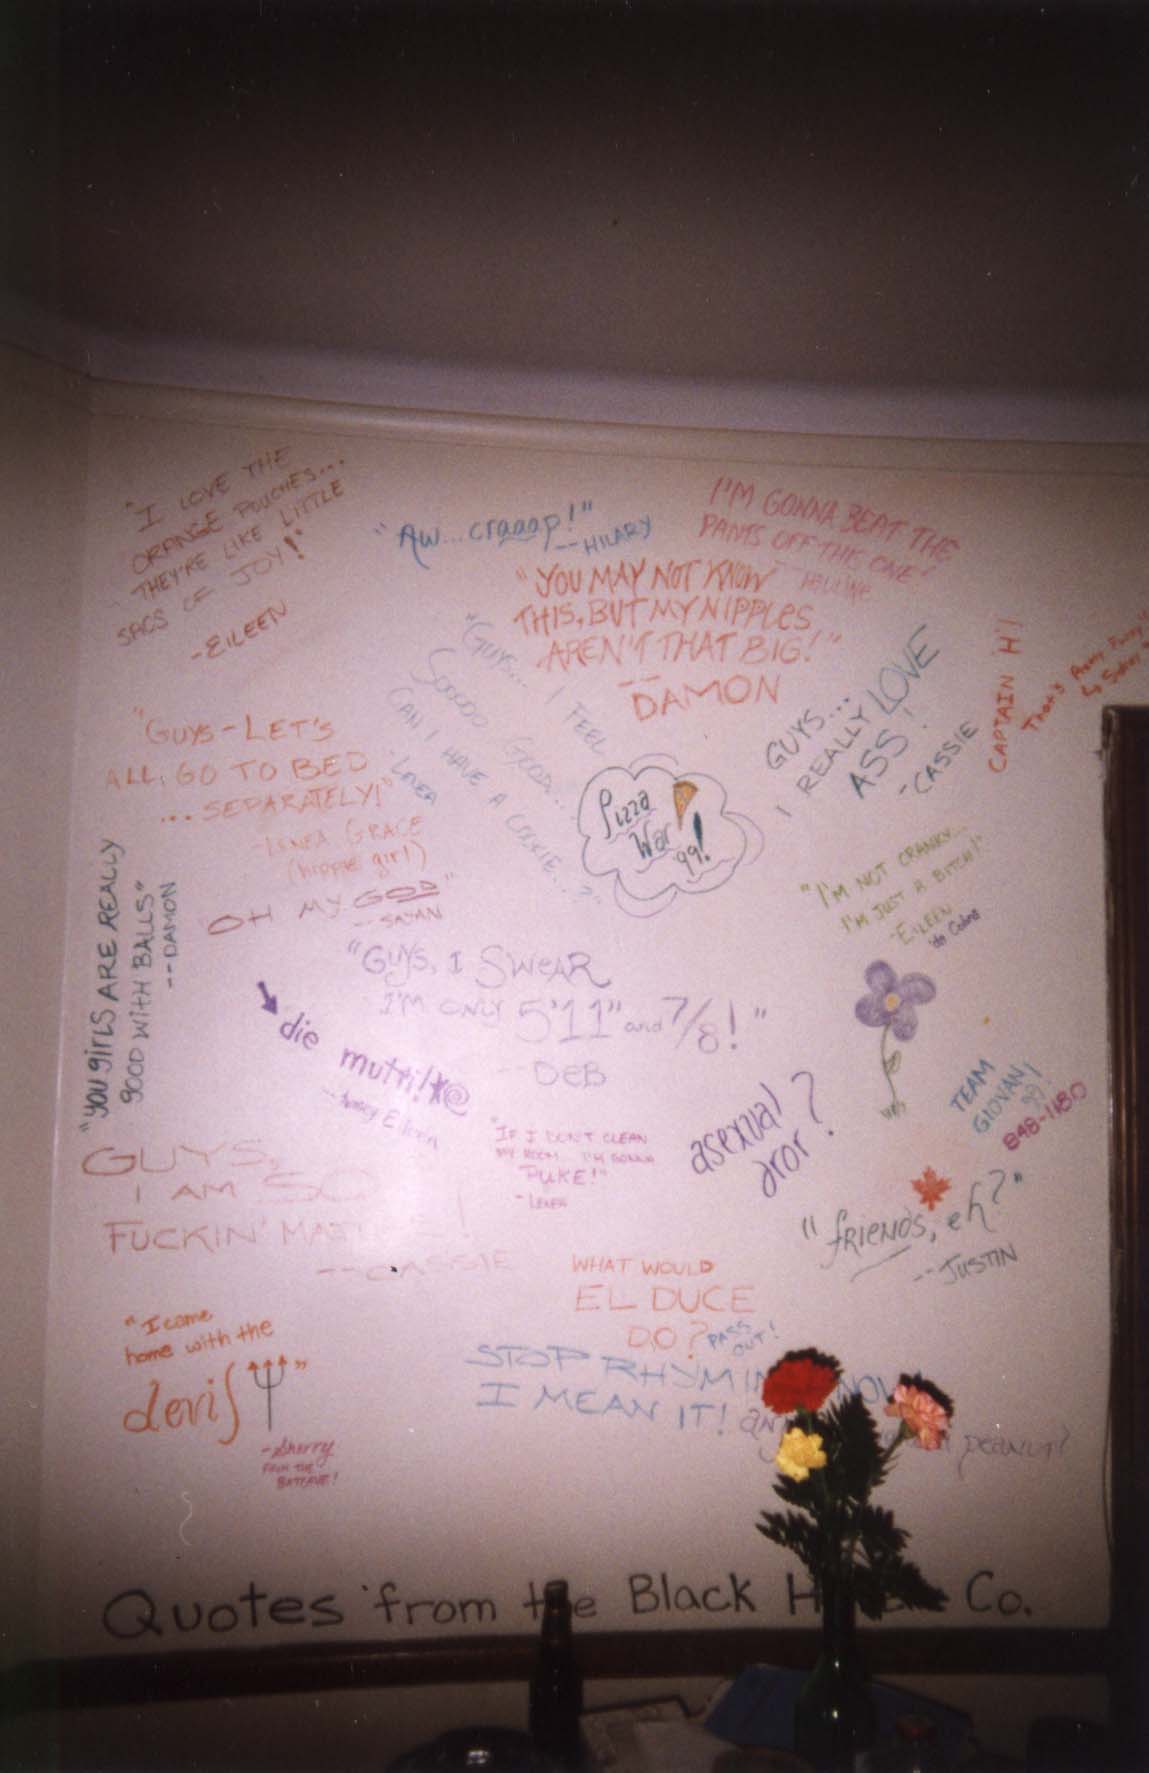 "I LOVE THE
ORANGE POUCHES...
THEY'RE LIKE LITTLE
SACS OF JOY!"
-EILEEN
"AW...craaap!"
--HILARY
I'M GONNA BEAT THE
PANTS OFF THIS ONE"
"YOU MAY NOT KNOW
THIS, BUT MY NIPPLES
AREN'T THAT BIG!"
--DAMON
"GUYS... I FEEL
SOOOOO GOOD...
CAN I HAVE A COOKIE...?"
-LINEA
GUYS...
I REALLY LOVE
ASS!
-CASSIE
CAPTAIN H!
That's Pretty Funny"
"GUYS-LET'S
ALL GO TO BED
...SEPARATELY!"
-LINEA GRACE
(hippie girl)
Pizza
War
99!
"YOU girls ARE REALLY
GOOD WITH BALLS"
--DAMON
OH MY GOD"
--SAYAN
"I'M NOT CRANKY...
I'M JUST A BITCH!"
-EILEEN
"GUYS, I SWEAR
I'M ONLY 5'11" and 7/8!"
--DEB
die mutti!
TEAM
GIOVANI
99!
848-1180
asexual
aror?
"IF I DON'T CLEAN
MY ROOM... I'M GONNA
PUKE!"
-LINEA
GUYS,
I AM SO
FUCKIN'
--CASSIE
"friends, eh?"
--JUSTIN
WHAT WOULD
EL DUCE
DO? PASS OUT!
"I came
home with the
devil"
-Sherry
FROM THE
BATCAVE!
STOP RHYMING NOW
I MEAN IT! PEANUT?
Quotes from the Black Co.